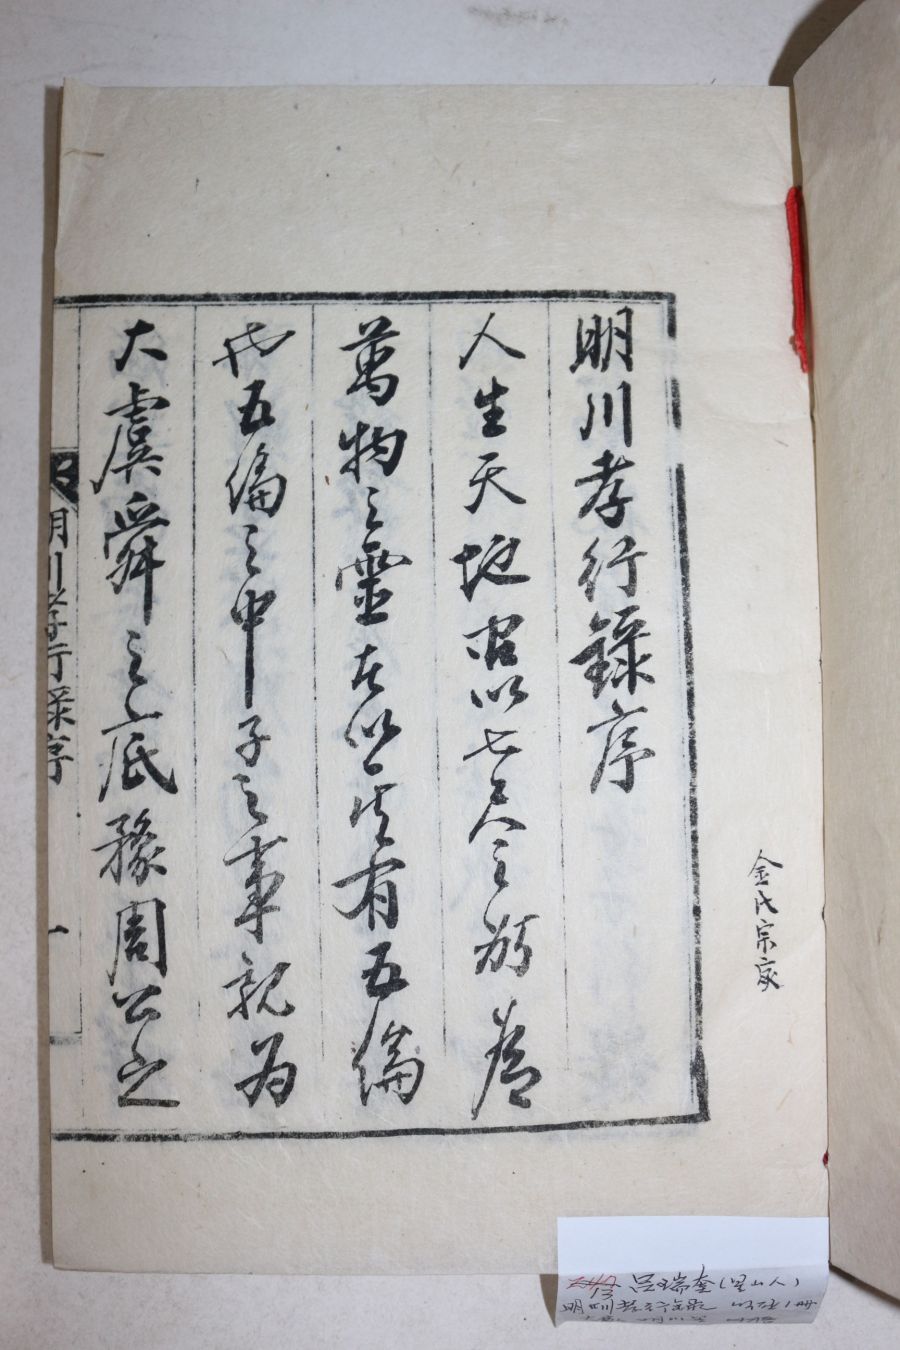 明川孝行錄序
人生天地間以七尺之形
萬物之靈者以其有五倫
也五倫之中子之事親爲
大虞舜之底豫周公之
明川孝行錄序
一
金氏宗家
呂瑞奎(星山人)